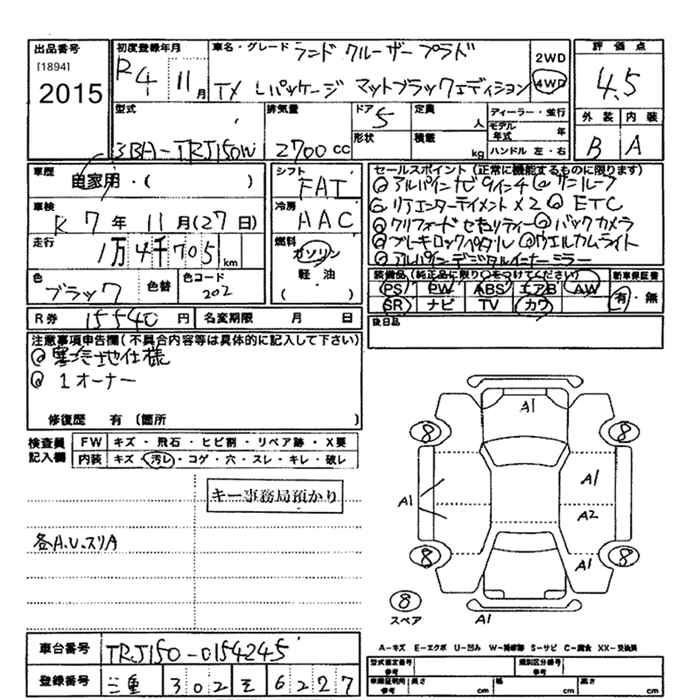 出品番号
[1894]
2015
初度登録年月
R4 11月
車名・グレード ランド クルーザー プラド
TX Lパッケージ マットブラックエディション
2WD
4WD
評価点
4.5
外装 内装
B A
型式
3BA-TRJ150W
排気量
2700cc
ドア 5
形状
定員 人
積載 kg
ディーラー・並行
モデル年式 年
ハンドル 左・右
車歴
自家用・( )
車検
R 7年 11月(27日)
走行
1万4千705km
色
ブラック
色替
色コード
202
シフト
FAT
冷房
AAC
燃料
ガソリン
軽・油
セールスポイント(正常に機能するものに限ります)
◎アルパインナビ9インチ ◎サンルーフ
◎リアエンターテイメント×2 ◎ETC
◎クリフォードセキュリティー ◎バックカメラ
◎ブレーキロックペダル ◎ウエルカムライト
◎アルパインデジタルインナーミラー
装備品(純正品に限り○をつけてください)
PS PW ABS エアB AW
SR ナビ TV カワ
新車保証書
有・無
後日品
R券 15540円
名変期限 月 日
注意事項申告欄(不具合内容等は具体的に記入して下さい)
◎寒冷地仕様
◎1オーナー
修復歴 有(箇所 )
検査員記入欄
FW キズ・飛石・ヒビ割・リペア跡・X要
内装 キズ・汚レ・コゲ・穴・スレ・キレ・破レ
キー事務局預かり
各A.U.スリA
A1
8
8
A1
A1
A2
8
8
A1
8
スペア
A1
A-キズ E-エクボ U-凹み W-補修跡 S-サビ C-腐食 XX-交換済
車台番号 TRJ150-0154245
登録番号 三重 302 そ 6227
型式指定番号
参考
類別区分番号
参考
車庫証明用
参考
長さ cm
幅 cm
高さ cm